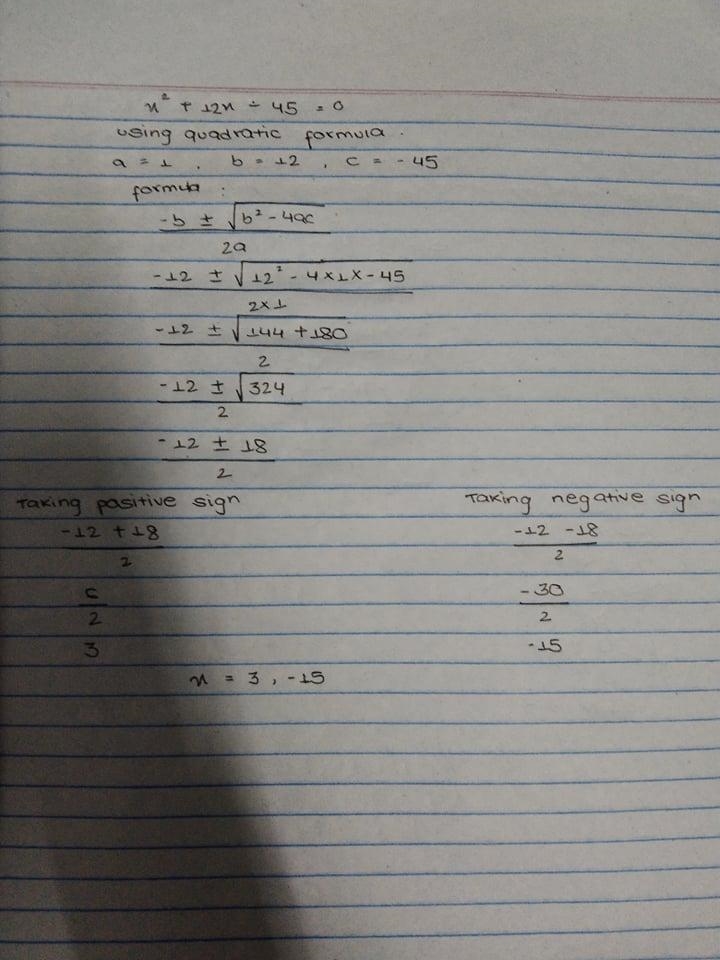 x² + 12x - 45 = 0
using quadratic formula.
a = 1, b = 12, c = -45
formula :
-b ± √b² - 4ac
2a
-12 ± √12² - 4×1×-45
2×1
-12 ± √144 + 180
2
-12 ± √324
2
-12 ± 18
2
Taking pasitive sign
-12 + 18
2
6
2
3
Taking negative sign
-12 - 18
2
-30
2
-15
x = 3, -15